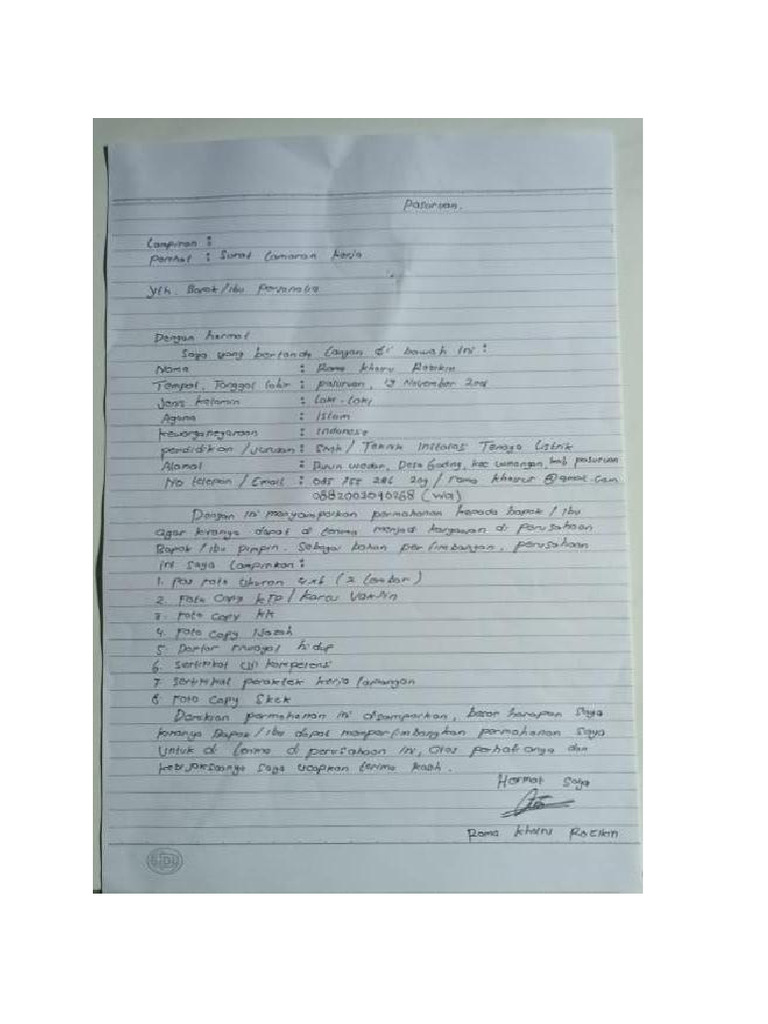 Pasuruan.
Lampiran :
Perihal : Surat Lamaran kerja
Yth. Bapak/ibu
Dengan hormat
Saya yang bertanda tangan di bawah ini :
Nama : Rama Khairu
Tempat, Tanggal lahir : pasuruan, November
Jenis kelamin : Laki-Laki
Agama : Islam
kewarganegaraan : Indonesia
pendidikan / jurusan : Smk / Teknik Instalasi Tenaga Listrik
Alamat : Dusun wedan, Desa Gading, kec winongan, kab pasuruan
No telepon / Email : 085 755 246 / rama @gmail.com
(wa)
Dengan ini menyampaikan permohonan kepada bapak / Ibu
agar kiranya dapat di terima menjadi karyawan di perusahaan
Bapak / Ibu pimpin. Sebagai bahan pertimbangan, perusahaan
ini saya lampirkan :
1. pas foto ukuran 4x6 (2 lembar)
2. Foto Copy KTP / kartu Vaksin
3. Foto Copy KK
4. Foto Copy Ijazah
5. Daftar riwayat hidup
6. Sertifikat Uji kompetensi
7. Sertifikat peraktek kerja lapangan
8. Foto Copy Skck
Demikian permohonan ini disampaikan, besar harapan saya
kiranya Bapak / Ibu dapat mempertimbangkan permohonan saya
Untuk di terima di perusahaan ini, Atas perhatianya dan
kebijaksanaanya saya ucapkan terima kasih.
Hormat saya
Rama Khairu
SIDU